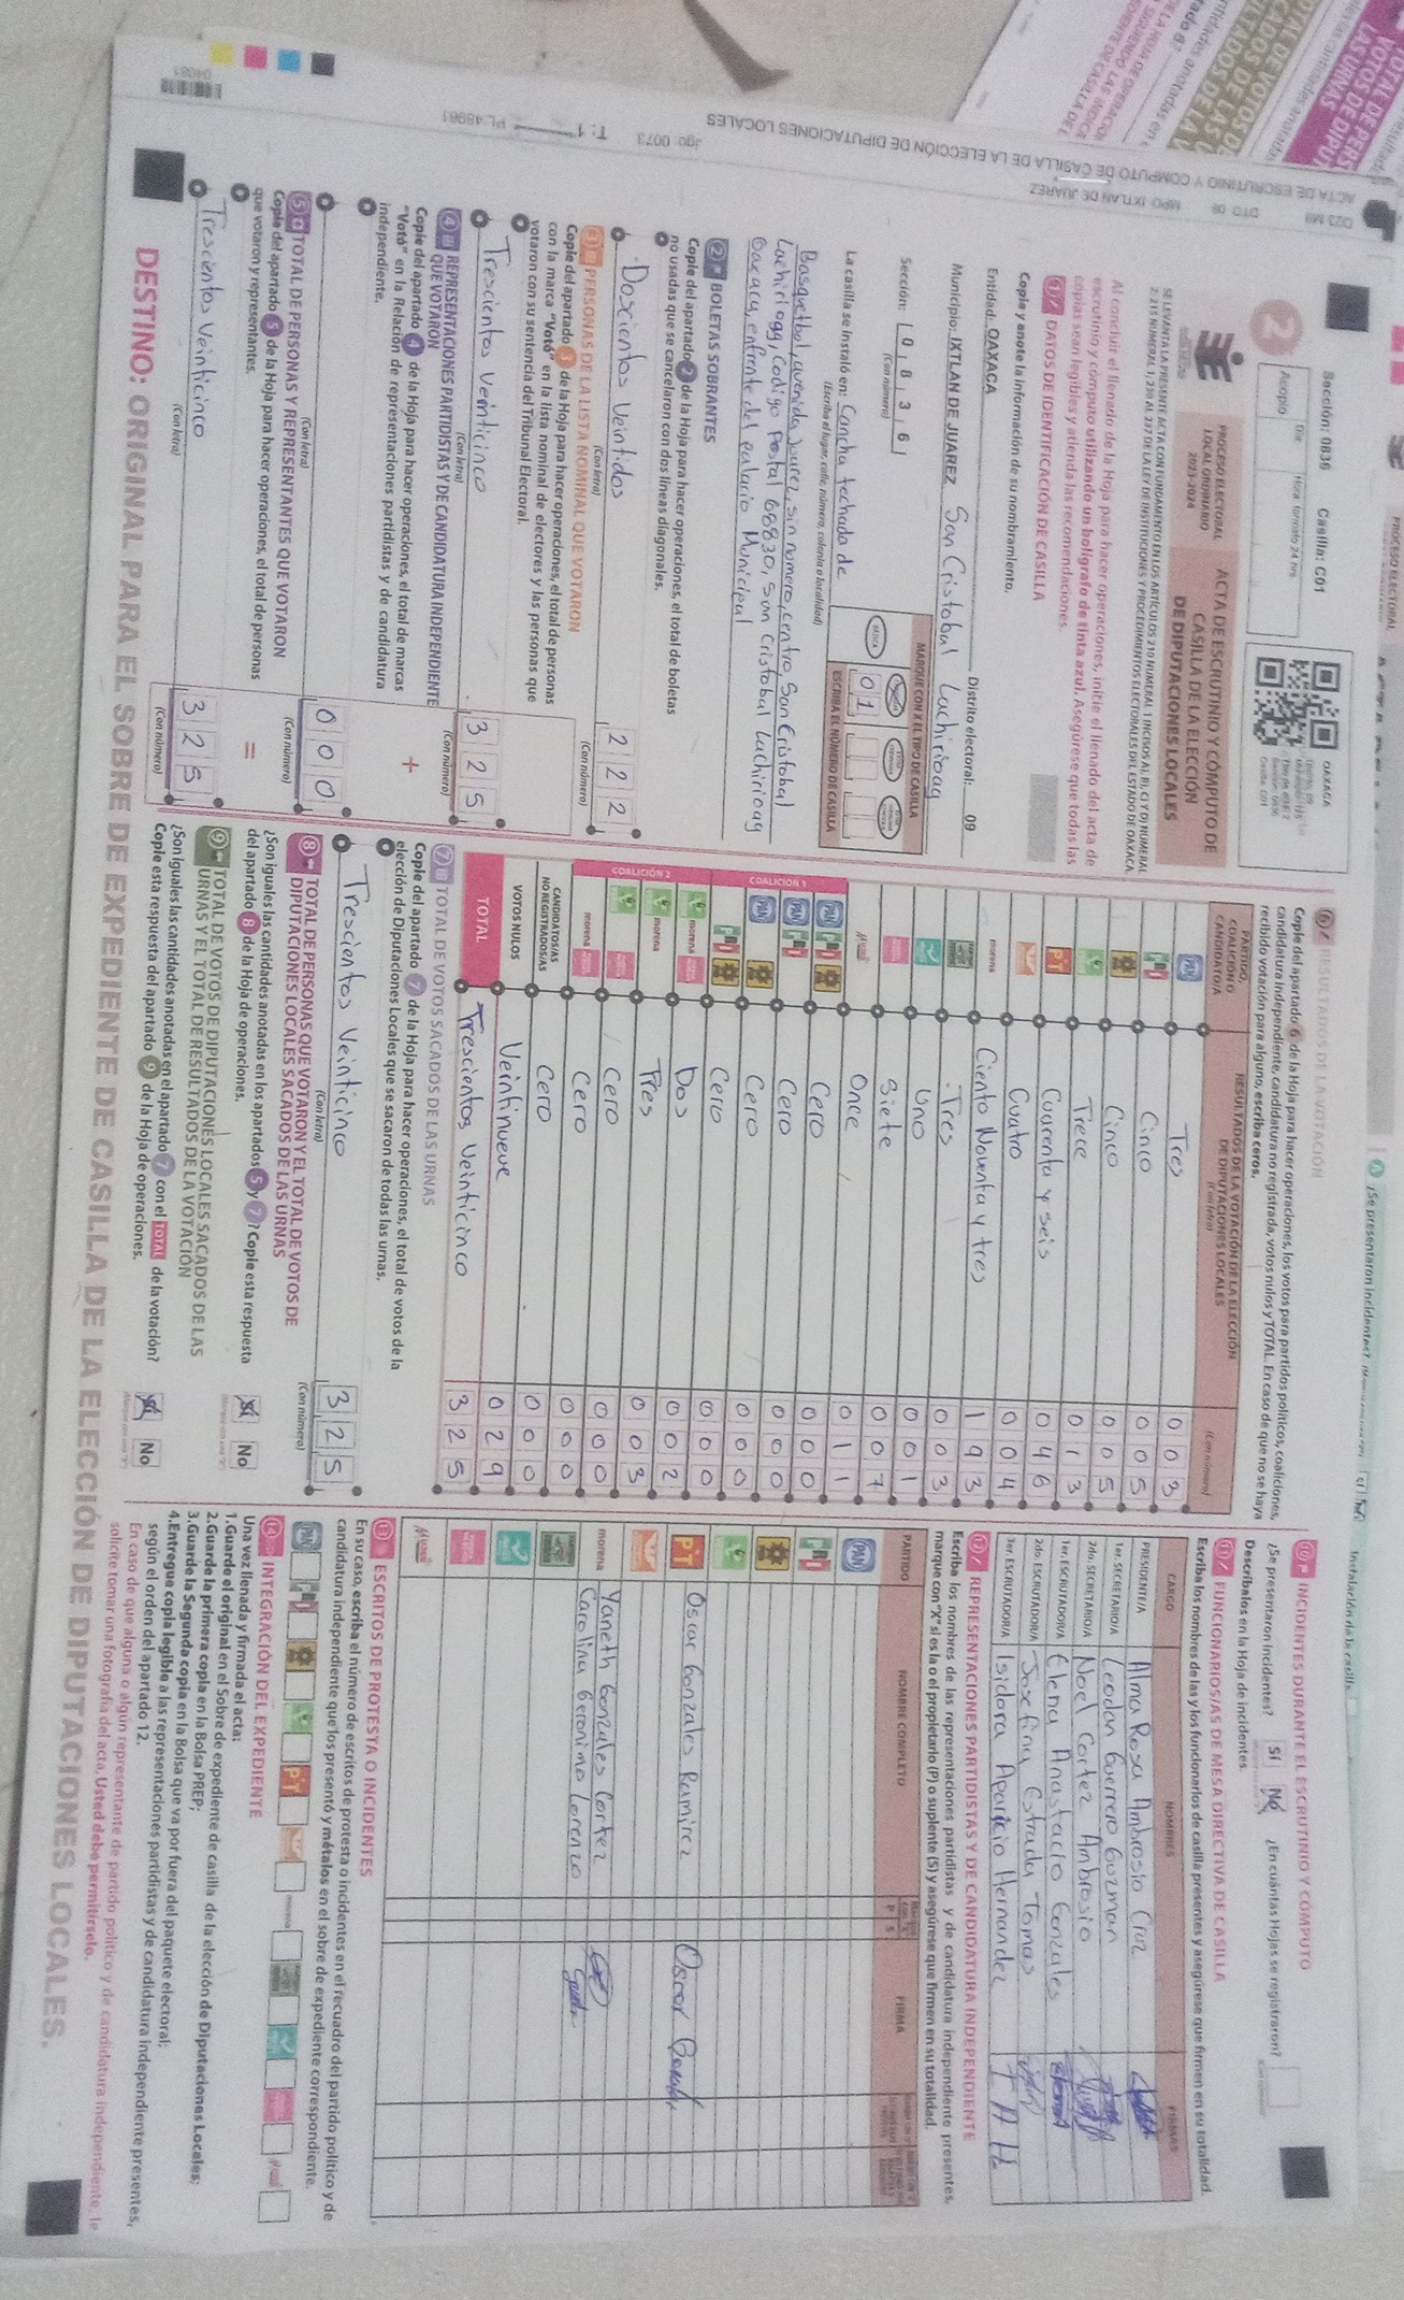 Sección: 0836 Casilla: C01
OAXACA
2
Acopio
Día
Hora formato 24 hrs
PROCESO ELECTORAL
LOCAL ORDINARIO
2023-2024
ACTA DE ESCRUTINIO Y CÓMPUTO DE
CASILLA DE LA ELECCIÓN
DE DIPUTACIONES LOCALES
Al concluir el llenado de la Hoja para hacer operaciones, inicie el llenado del acta de
escrutinio y cómputo utilizando un bolígrafo de tinta azul. Asegúrese que todas las
copias sean legibles y atienda las recomendaciones.
1 DATOS DE IDENTIFICACIÓN DE CASILLA
Copie y anote la información de su nombramiento.
Entidad: OAXACA
Distrito electoral: 09
Municipio: IXTLAN DE JUAREZ San Cristobal Lachirioag
Sección: 0 8 3 6
(Con número)
MARQUE CON X EL TIPO DE CASILLA
ESCRIBA EL NÚMERO DE CASILLA
0 1
La casilla se instaló en: Cancha techado de
(Escriba el lugar, calle, número, colonia o localidad)
Basquetbol, avenida Juarez, sin numero, centro, San Cristobal
Lachiriogg, Codigo Postal 68830, San Cristobal Lachirioag
Oaxaca, enfrente del palacio Municipal
2 BOLETAS SOBRANTES
Copie del apartado 2 de la Hoja para hacer operaciones, el total de boletas
no usadas que se cancelaron con dos líneas diagonales.
Doscientos Veintidos 2 2 2
(Con letra) (Con número)
3 PERSONAS DE LA LISTA NOMINAL QUE VOTARON
Copie del apartado 3 de la Hoja para hacer operaciones, el total de personas
con la marca "Votó" en la lista nominal de electores y las personas que
votaron con su sentencia del Tribunal Electoral.
Trescientos Veinticinco 3 2 5
(Con letra) (Con número)
4 REPRESENTACIONES PARTIDISTAS Y DE CANDIDATURA INDEPENDIENTE
QUE VOTARON
Copie del apartado 4 de la Hoja para hacer operaciones, el total de marcas
"Votó" en la Relación de representaciones partidistas y de candidatura
independiente.
+
0 0 0
(Con letra) (Con número)
5 TOTAL DE PERSONAS Y REPRESENTANTES QUE VOTARON
Copie del apartado 5 de la Hoja para hacer operaciones, el total de personas
que votaron y representantes.
=
Trescientos Veinticinco 3 2 5
(Con letra) (Con número)
6 RESULTADOS DE LA VOTACIÓN
Copie del apartado 6 de la Hoja para hacer operaciones, los votos para partidos políticos, coaliciones,
candidatura independiente, candidatura no registrada, votos nulos y TOTAL. En caso de que no se haya
recibido votación para alguno, escriba ceros.
PARTIDO,
COALICIÓN O
CANDIDATO/A
RESULTADOS DE LA VOTACIÓN DE LA ELECCIÓN
DE DIPUTACIONES LOCALES
(Con letra)
(Con número)
PAN Tres 0 0 3
PRI Cinco 0 0 5
Cinco 0 0 5
Trece 0 1 3
PT Cuarenta y seis 0 4 6
Cuatro 0 0 4
morena Ciento Noventa y tres 1 9 3
Tres 0 0 3
Uno 0 0 1
Siete 0 0 7
Once 0 1 1
COALICIÓN 1
PAN PRI Cero 0 0 0
PAN PRI Cero 0 0 0
PAN Cero 0 0 0
PRI Cero 0 0 0
COALICIÓN 2
morena Dos 0 0 2
morena Tres 0 0 3
Cero 0 0 0
morena Cero 0 0 0
CANDIDATOS/AS
NO REGISTRADOS/AS
Cero 0 0 0
VOTOS NULOS Veintinueve 0 2 9
TOTAL Trescientos Veinticinco 3 2 5
7 TOTAL DE VOTOS SACADOS DE LAS URNAS
Copie del apartado 7 de la Hoja para hacer operaciones, el total de votos de la
elección de Diputaciones Locales que se sacaron de todas las urnas.
Trescientos Veinticinco 3 2 5
(Con letra) (Con número)
8 TOTAL DE PERSONAS QUE VOTARON Y EL TOTAL DE VOTOS DE
DIPUTACIONES LOCALES SACADOS DE LAS URNAS
¿Son iguales las cantidades anotadas en los apartados 5 y 7? Copie esta respuesta
del apartado 8 de la Hoja de operaciones.
Sí No
9 TOTAL DE VOTOS DE DIPUTACIONES LOCALES SACADOS DE LAS
URNAS Y EL TOTAL DE RESULTADOS DE LA VOTACIÓN
¿Son iguales las cantidades anotadas en el apartado 7 con el TOTAL de la votación?
Copie esta respuesta del apartado 9 de la Hoja de operaciones.
Sí No
10 INCIDENTES DURANTE EL ESCRUTINIO Y CÓMPUTO
¿Se presentaron incidentes? Sí No ¿En cuántas Hojas se registraron?
Descríbalos en la Hoja de incidentes.
11 FUNCIONARIOS/AS DE MESA DIRECTIVA DE CASILLA
Escriba los nombres de las y los funcionarios de casilla presentes y asegúrese que firmen en su totalidad.
CARGO NOMBRES FIRMAS
PRESIDENTE/A Alma Rosa Ambrosio Cruz
1er. SECRETARIO/A Leodan Guerrero Guzman
2do. SECRETARIO/A Noel Cortez Ambrosio
1er. ESCRUTADOR/A Elena Anastacio Gonzales
2do. ESCRUTADOR/A Josefina Estrada Tomas
3er. ESCRUTADOR/A Isidora Aparicio Hernandez I A H
12 REPRESENTACIONES PARTIDISTAS Y DE CANDIDATURA INDEPENDIENTE
Escriba los nombres de las representaciones partidistas y de candidatura independiente presentes,
marque con "X" si es la o el propietario (P) o suplente (S) y asegúrese que firmen en su totalidad.
PARTIDO NOMBRE COMPLETO P S FIRMA
PAN
PRI
PT Oscar Gonzales Ramirez
morena Yaneth Gonzales Cortez
Carolina Geronimo Lorenzo
13 ESCRITOS DE PROTESTA O INCIDENTES
En su caso, escriba el número de escritos de protesta o incidentes en el recuadro del partido político y de
candidatura independiente que los presentó y métalos en el sobre de expediente correspondiente.
PAN PRI PT morena
14 INTEGRACIÓN DEL EXPEDIENTE
Una vez llenada y firmada el acta:
1.Guarde el original en el Sobre de expediente de casilla de la elección de Diputaciones Locales;
2.Guarde la primera copia en la Bolsa PREP;
3.Guarde la Segunda copia en la Bolsa que va por fuera del paquete electoral;
4.Entregue copia legible a las representaciones partidistas y de candidatura independiente presentes,
según el orden del apartado 12.
En caso de que alguna o algún representante de partido político y de candidatura independiente, le
solicite tomar una fotografía del acta, Usted debe permitírselo.
DESTINO: ORIGINAL PARA EL SOBRE DE EXPEDIENTE DE CASILLA DE LA ELECCIÓN DE DIPUTACIONES LOCALES.
ACTA DE ESCRUTINIO Y CÓMPUTO DE CASILLA DE LA ELECCIÓN DE DIPUTACIONES LOCALES
DTO 09 MPO IXTLAN DE JUAREZ
Jgo: 0073
T: 1
PL: 48981